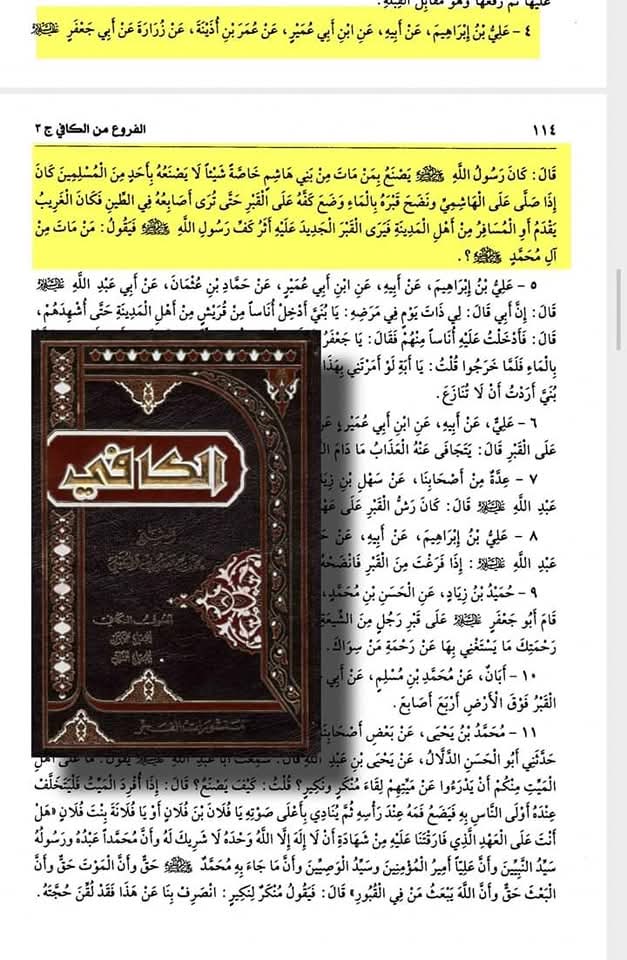 عليها ثم رفعها وهو مقابل القبلة.
٤ - عَلِيُّ بْنُ إِبْرَاهِيمَ، عَنْ أَبِيهِ، عَنِ ابْنِ أَبِي عُمَيْرٍ، عَنْ عُمَرَ بْنِ أُذَيْنَةَ، عَنْ زُرَارَةَ عَنْ أَبِي جَعْفَرٍ عليه السلام
١١٤ الفروع من الكافي ج ٣
قَالَ: كَانَ رَسُولُ اللَّهِ ﷺ يَصْنَعُ بِمَنْ مَاتَ مِنْ بَنِي هَاشِمٍ خَاصَّةً شَيْئاً لَا يَصْنَعُهُ بِأَحَدٍ مِنَ الْمُسْلِمِينَ كَانَ
إِذَا صَلَّى عَلَى الْهَاشِمِيِّ وَنَضَحَ قَبْرَهُ بِالْمَاءِ وَضَعَ كَفَّهُ عَلَى الْقَبْرِ حَتَّى تُرَى أَصَابِعُهُ فِي الطِّينِ فَكَانَ الْغَرِيبُ
يَقْدَمُ أَوِ الْمُسَافِرُ مِنْ أَهْلِ الْمَدِينَةِ فَيَرَى الْقَبْرَ الْجَدِيدَ عَلَيْهِ أَثَرُ كَفِّ رَسُولِ اللَّهِ ﷺ فَيَقُولُ: مَنْ مَاتَ مِنْ
آلِ مُحَمَّدٍ ﷺ؟.
٥ - عَلِيُّ بْنُ إِبْرَاهِيمَ، عَنْ أَبِيهِ، عَنِ ابْنِ أَبِي عُمَيْرٍ، عَنْ حَمَّادِ بْنِ عُثْمَانَ، عَنْ أَبِي عَبْدِ اللَّهِ عليه السلام
قَالَ: إِنَّ أَبِي قَالَ: لِي ذَاتَ يَوْمٍ فِي مَرَضِهِ: يَا بُنَيَّ أَدْخِلْ أُنَاساً مِنْ قُرَيْشٍ مِنْ أَهْلِ الْمَدِينَةِ حَتَّى أُشْهِدَهُمْ،
قَالَ: فَأَدْخَلْتُ عَلَيْهِ أُنَاساً مِنْهُمْ فَقَالَ: يَا جَعْفَرُ
بِالْمَاءِ فَلَمَّا خَرَجُوا قُلْتُ: يَا أَبَةِ لَوْ أَمَرْتَنِي بِهَذَا
بُنَيَّ أَرَدْتُ أَنْ لَا تُنَازَعَ.
٦ - عَلِيٌّ، عَنْ أَبِيهِ، عَنِ ابْنِ أَبِي عُمَيْرٍ،
عَلَى الْقَبْرِ قَالَ: يَتَجَافَى عَنْهُ الْعَذَابُ مَا دَامَ
٧ - عِدَّةٌ مِنْ أَصْحَابِنَا، عَنْ سَهْلِ بْنِ
عَبْدِ اللَّهِ عليه السلام قَالَ: كَانَ رَشُّ الْقَبْرِ عَلَى
٨ - عَلِيُّ بْنُ إِبْرَاهِيمَ، عَنْ أَبِيهِ، عَنِ
عَبْدِ اللَّهِ عليه السلام: إِذَا فَرَغْتَ مِنَ الْقَبْرِ فَانْضَحْهُ
٩ - حُمَيْدُ بْنُ زِيَادٍ، عَنِ الْحَسَنِ بْنِ مُحَمَّدٍ،
قَامَ أَبُو جَعْفَرٍ عليه السلام عَلَى قَبْرِ رَجُلٍ مِنَ الشِّيعَةِ
رَحْمَتِكَ مَا يَسْتَغْنِي بِهَا عَنْ رَحْمَةِ مَنْ سِوَاكَ.
١٠ - أَبَانٌ، عَنْ مُحَمَّدِ بْنِ مُسْلِمٍ، عَنْ أَبِي
الْقَبْرُ فَوْقَ الْأَرْضِ أَرْبَعَ أَصَابِعَ.
١١ - مُحَمَّدُ بْنُ يَحْيَى، عَنْ بَعْضِ أَصْحَابِنَا
حَدَّثَنِي أَبُو الْحَسَنِ الدَّلَّالُ، عَنْ يَحْيَى بْنِ عَبْدِ اللَّهِ قَالَ: سَمِعْتُ أَبَا عَبْدِ اللَّهِ عليه السلام يَقُولُ: مَا عَلَى أَهْلِ
الْمَيِّتِ مِنْكُمْ أَنْ يَدْرَءُوا عَنْ مَيِّتِهِمْ لِقَاءَ مُنْكَرٍ وَنَكِيرٍ؟ قُلْتُ: كَيْفَ يَصْنَعُ؟ قَالَ: إِذَا أُفْرِدَ الْمَيِّتُ فَلْيَتَخَلَّفْ
عِنْدَهُ أَوْلَى النَّاسِ بِهِ فَيَضَعُ فَمَهُ عِنْدَ رَأْسِهِ ثُمَّ يُنَادِي بِأَعْلَى صَوْتِهِ يَا فُلَانَ بْنَ فُلَانٍ أَوْ يَا فُلَانَةَ بِنْتَ فُلَانٍ «هَلْ
أَنْتَ عَلَى الْعَهْدِ الَّذِي فَارَقْتَنَا عَلَيْهِ مِنْ شَهَادَةِ أَنْ لَا إِلَهَ إِلَّا اللَّهُ وَحْدَهُ لَا شَرِيكَ لَهُ وَأَنَّ مُحَمَّداً عَبْدُهُ وَرَسُولُهُ
سَيِّدُ النَّبِيِّينَ وَأَنَّ عَلِيّاً أَمِيرُ الْمُؤْمِنِينَ وَسَيِّدُ الْوَصِيِّينَ وَأَنَّ مَا جَاءَ بِهِ مُحَمَّدٌ ﷺ حَقٌّ وَأَنَّ الْمَوْتَ حَقٌّ وَأَنَّ
الْبَعْثَ حَقٌّ وَأَنَّ اللَّهَ يَبْعَثُ مَنْ فِي الْقُبُورِ» قَالَ: فَيَقُولُ مُنْكَرٌ لِنَكِيرٍ: انْصَرِفْ بِنَا عَنْ هَذَا فَقَدْ لُقِّنَ حُجَّتَهُ.
الكافي
منشورات الفجر